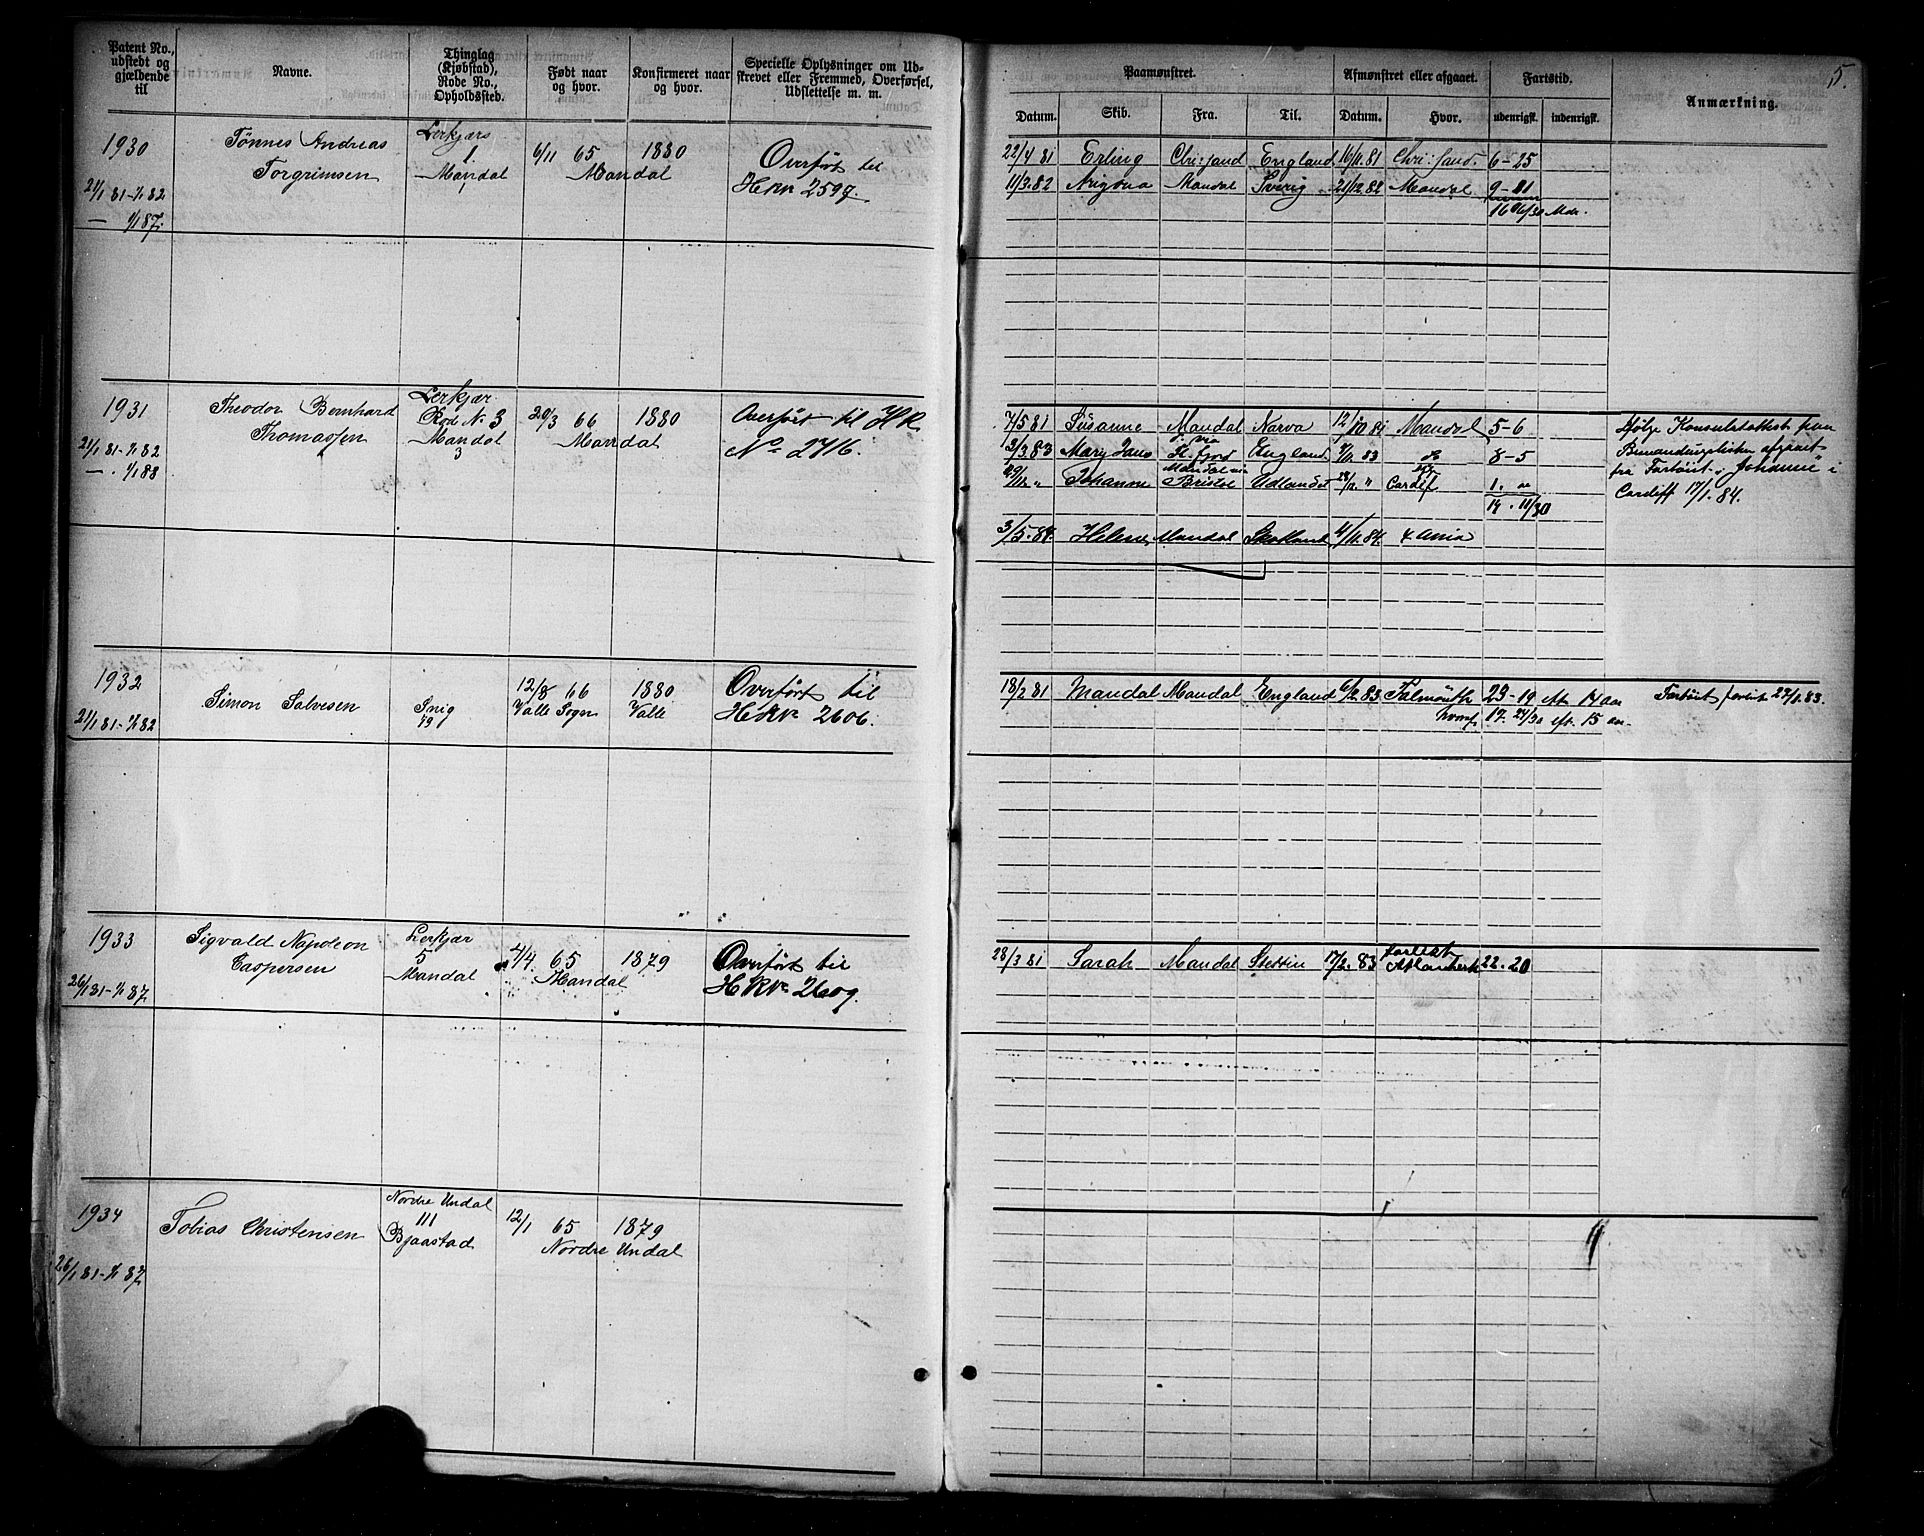 Patent No., udstedt og gjældende til
Navne.
Thinglag (Kjøbstad), Rode No., Opholdssted.
Født naar og hvor.
Konfirmeret naar og hvor.
Specielle Oplysninger om Udskrevet eller Fremmed, Overførsel, Udslettelse m. m.
Paamønstret.
Afmønstret eller afgaaet.
Fartstid.
Anmærkning.
5.
Datum. Skib. Fra. Til. Datum. Hvor. udenrigsk. indenrigsk.
1930 Tønnes Andreas Lerkjærs 6/11 65 1880 Overført til
Torgrimsen 1 Mandal Mandal HRN 2597.
21/1 81-1/1 82
— 1/1 87.
22/4 81 Erling Chr:sand England 16/11.81 Chri:sand. 6-25
11/3.82 Mandal Sverig 21/12.82 Mandal 9-21
16 16/30 Mdr.
1931 Theodor Bernhard Lerkjær 20/3 66 1880 Overført til H.R.
Thomassen Rode N. 3 Mandal Mandal No 2716.
3
21/1 81-1/1 82
—. 1/1 88
7/5 81 Susanne Mandal Narva 12/10.81 Mandal 5-6
13/3.83 Mary Jans via England 83 do 8-5
29/11 " Johanne Mandal via Bristol Udlandet " Cardif 1.
14. 11/30
3/5.84. Helene Mandal Skotland 4/11.84.
Ifølge Konsulatattest paa
afgaaet
fra Fartøiet "Johanne" i
Cardiff 17/1.84.
1932 Simon Salvesen Snig 12/8 66 1880 Overført til
19 Valle Sogn Valle HRN 2606.
21/1 81-1/1 82
18/2 81 Mandal Mandal England 6/2.83 Falmouth 29-19 eft. 14 aar Fartøiet forlist 27/1.83.
hvoraf 17. 24/30 eft. 15 aar.
1933 Sigvald Napoleon Lerkjær 4/4. 65 1879 Overført til
Caspersen 5 Mandal Mandal HRN 2609.
26/1 81-1/1 87.
28/3 81 Sarah Mandal Stettin 17/2.83 forlist Atlanterh 22-20
1934 Tobias Christensen Nordre Undal 12/1 65 1879
111 Bjaastad Nordre Undal
26/1 81-1/1 87.